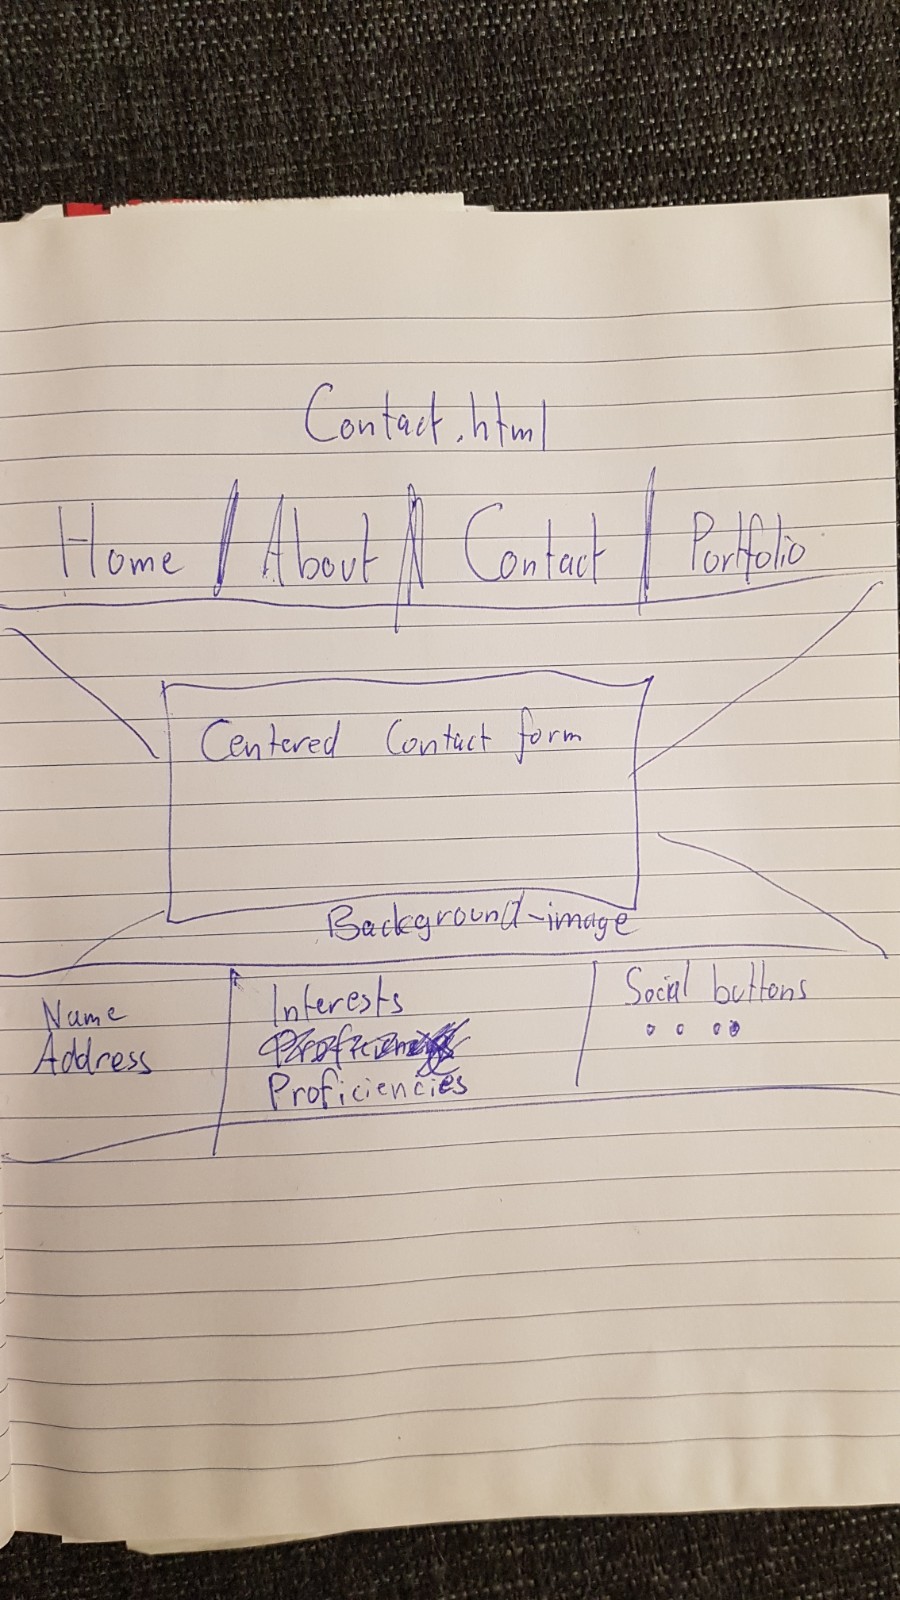 Contact.html
Home / About / Contact / Portfolio
Centered Contact form
Background-image
Name
Address
Interests
Proficiencies
Social buttons